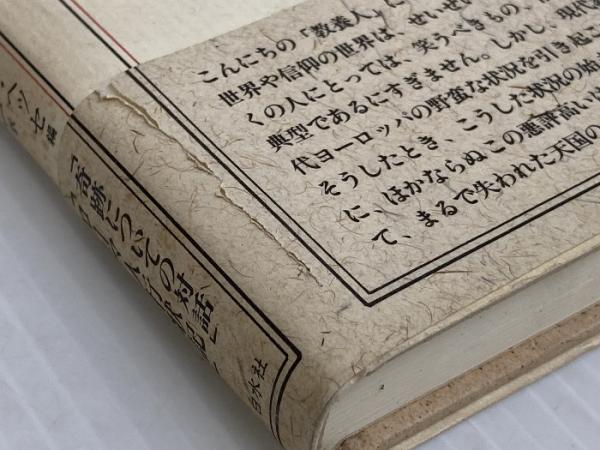 こんにちの「教養人」に
世界や信仰の世界は、せいぜい
くの人にとっては、笑うべきもの、
典型であるにすぎません。しかし、現代
代ヨーロッパの野蛮な状況を引き起こ
そうしたとき、こうした状況の始
に、ほかならぬこの悪評高い
て、まるで失われた天国の
ヘッセ 編
「奇跡についての対話」
白水社